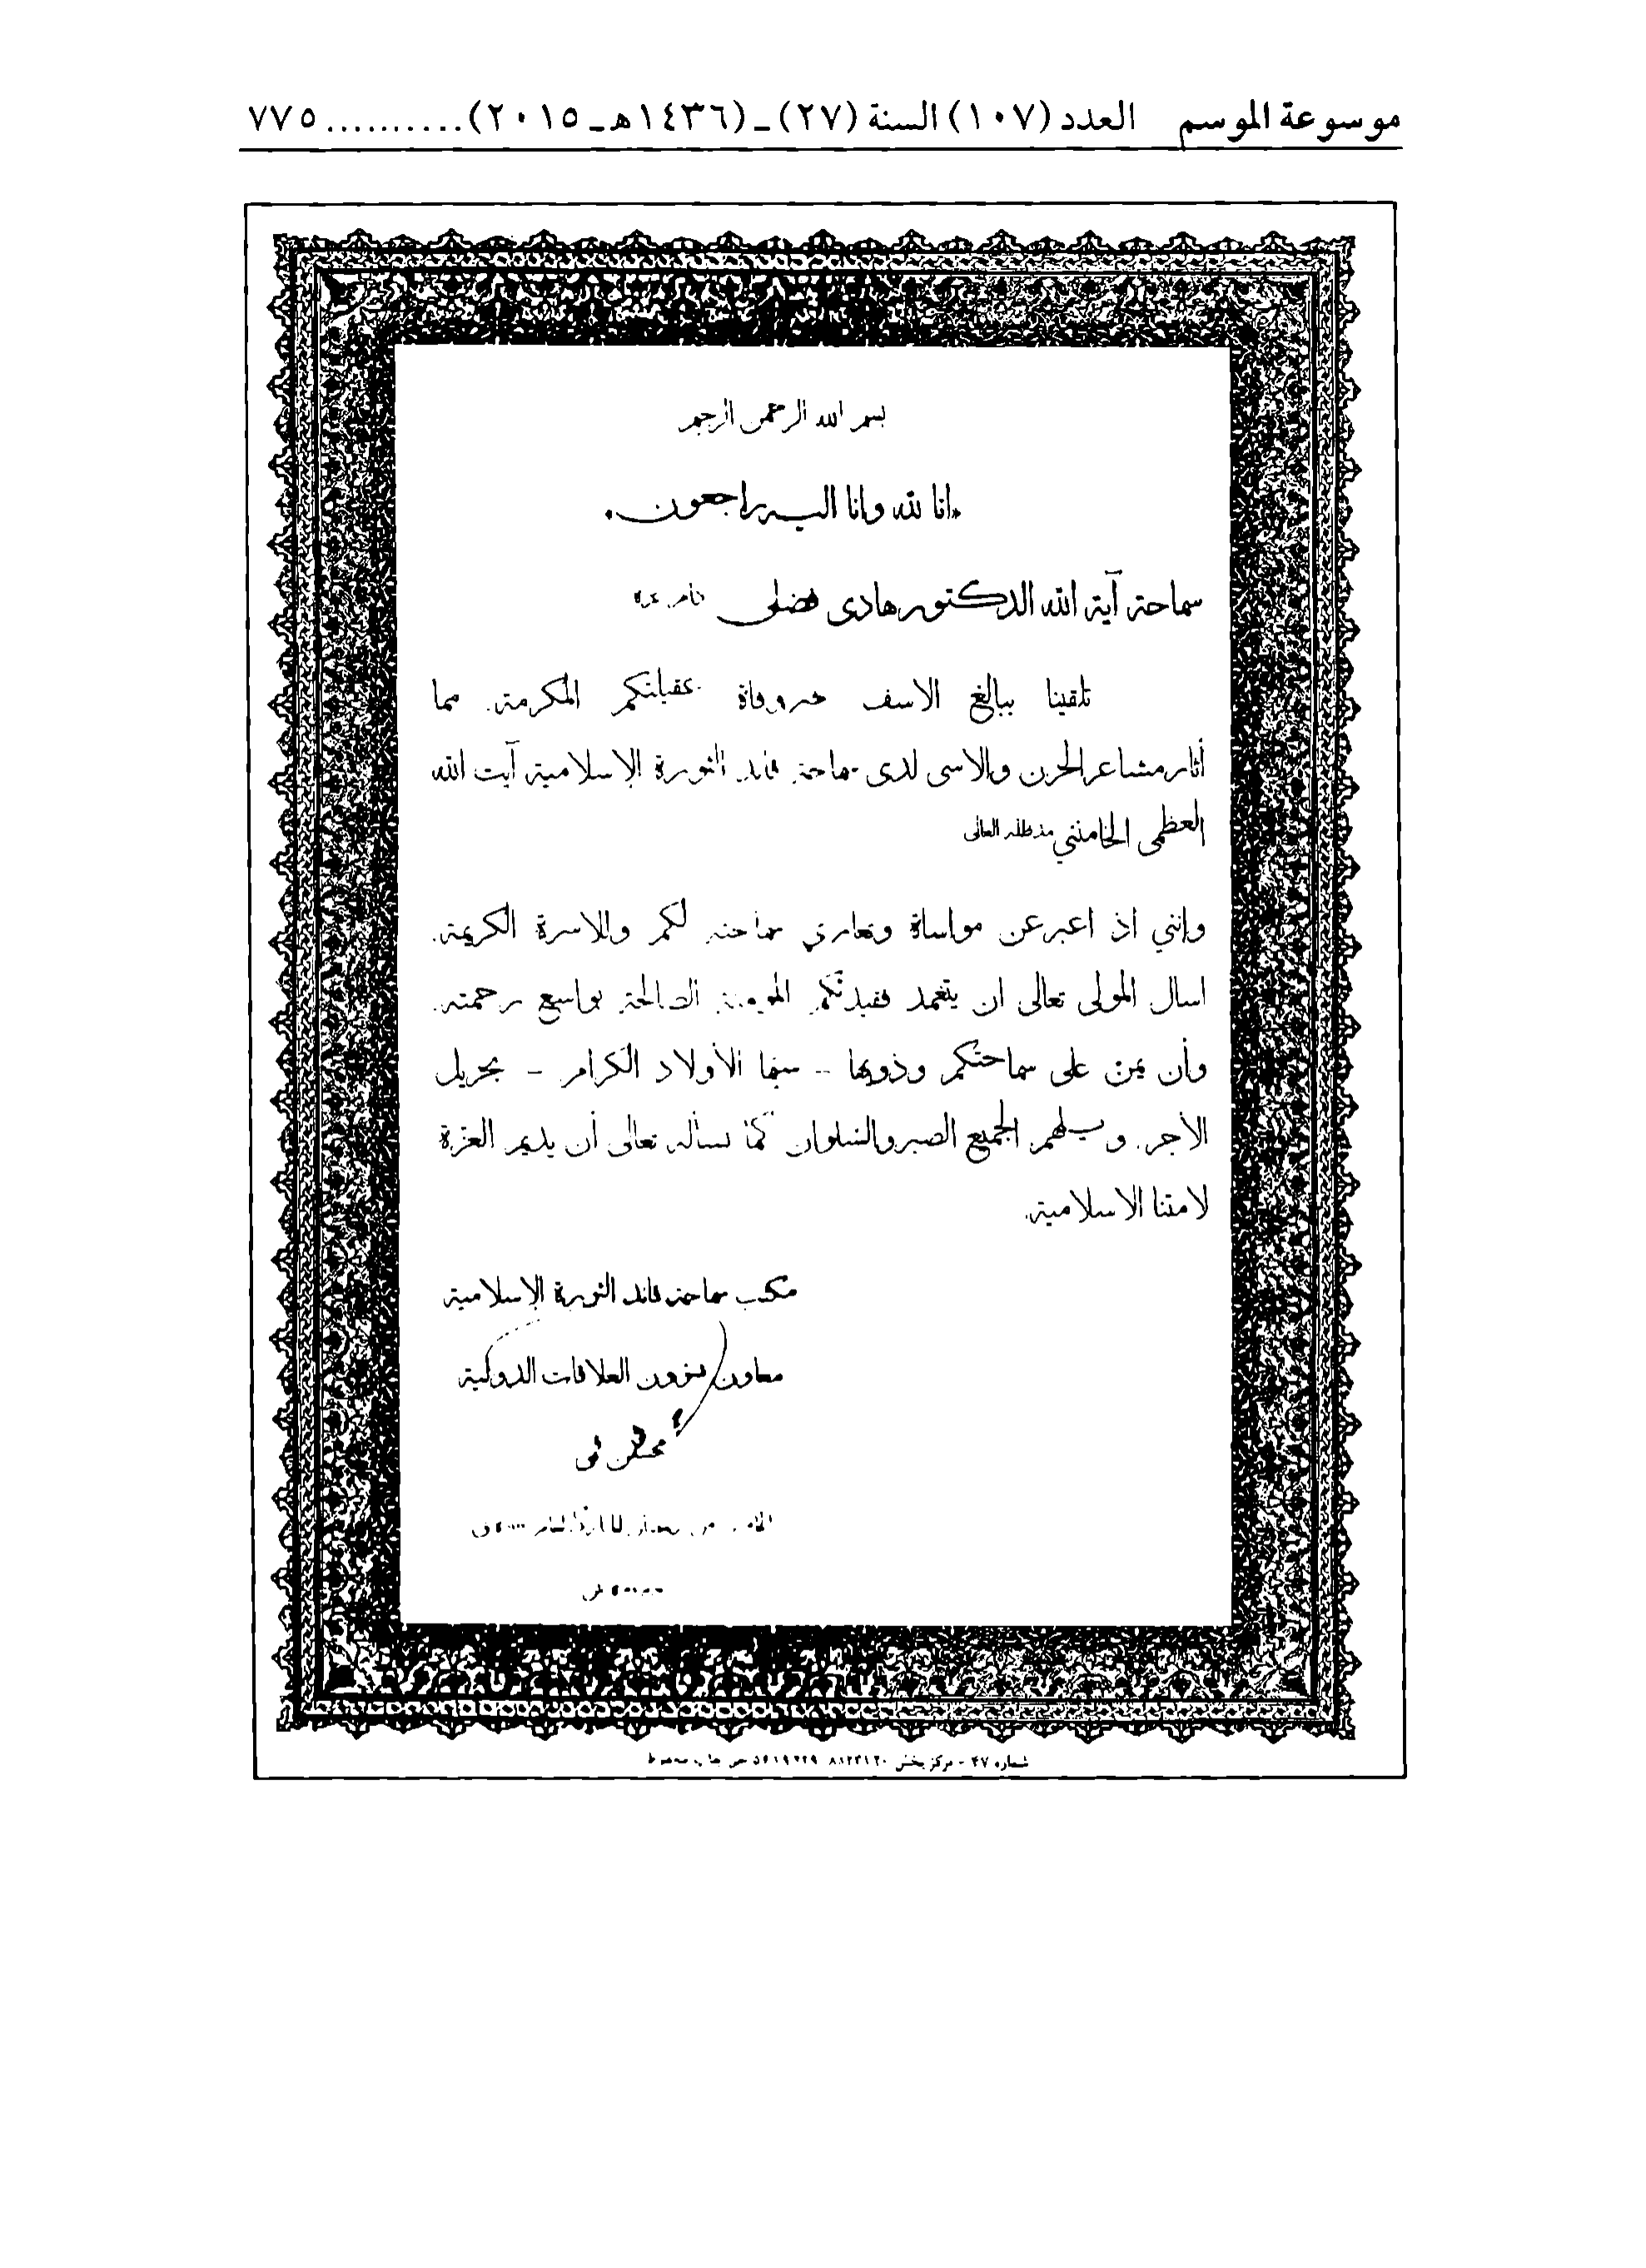 موسوعة الموسم العدد (١٠٧) السنة (٢٧) ـ (١٤٣٦هـ ـ ٢٠١٥) .......... ٧٧٥
بسم الله الرحمن الرحيم
انا لله وانا اليه راجعون
سماحة آية الله الدكتور هادى فضلى
تلقينا ببالغ الاسف خبر وفاة عقيلتكم المكرمة. مما
أثار مشاعر الحزن والاسى لدى سماحة قائد الثورة الإسلامية آيت الله
العظمى الخامنئي مد ظله العالى
وإنني اذ اعبر عن مواساة وتعازي سماحته لكم وللاسرة الكريمة.
اسال المولى تعالى ان يتغمد فقيدتكم المؤمنة الصالحة بواسع رحمته.
وأن يمنّ على سماحتكم وذويها - سيّما الأولاد الكرام - بجزيل
الأجر. ويلهم الجميع الصبر والسّلوان كما نسأله تعالى أن يديم العزة
لامتنا الاسلامية.
مكتب سماحة قائد الثورة الإسلامية
معاون شؤون العلاقات الدولية
شماره ٤٧ - مركز پخش